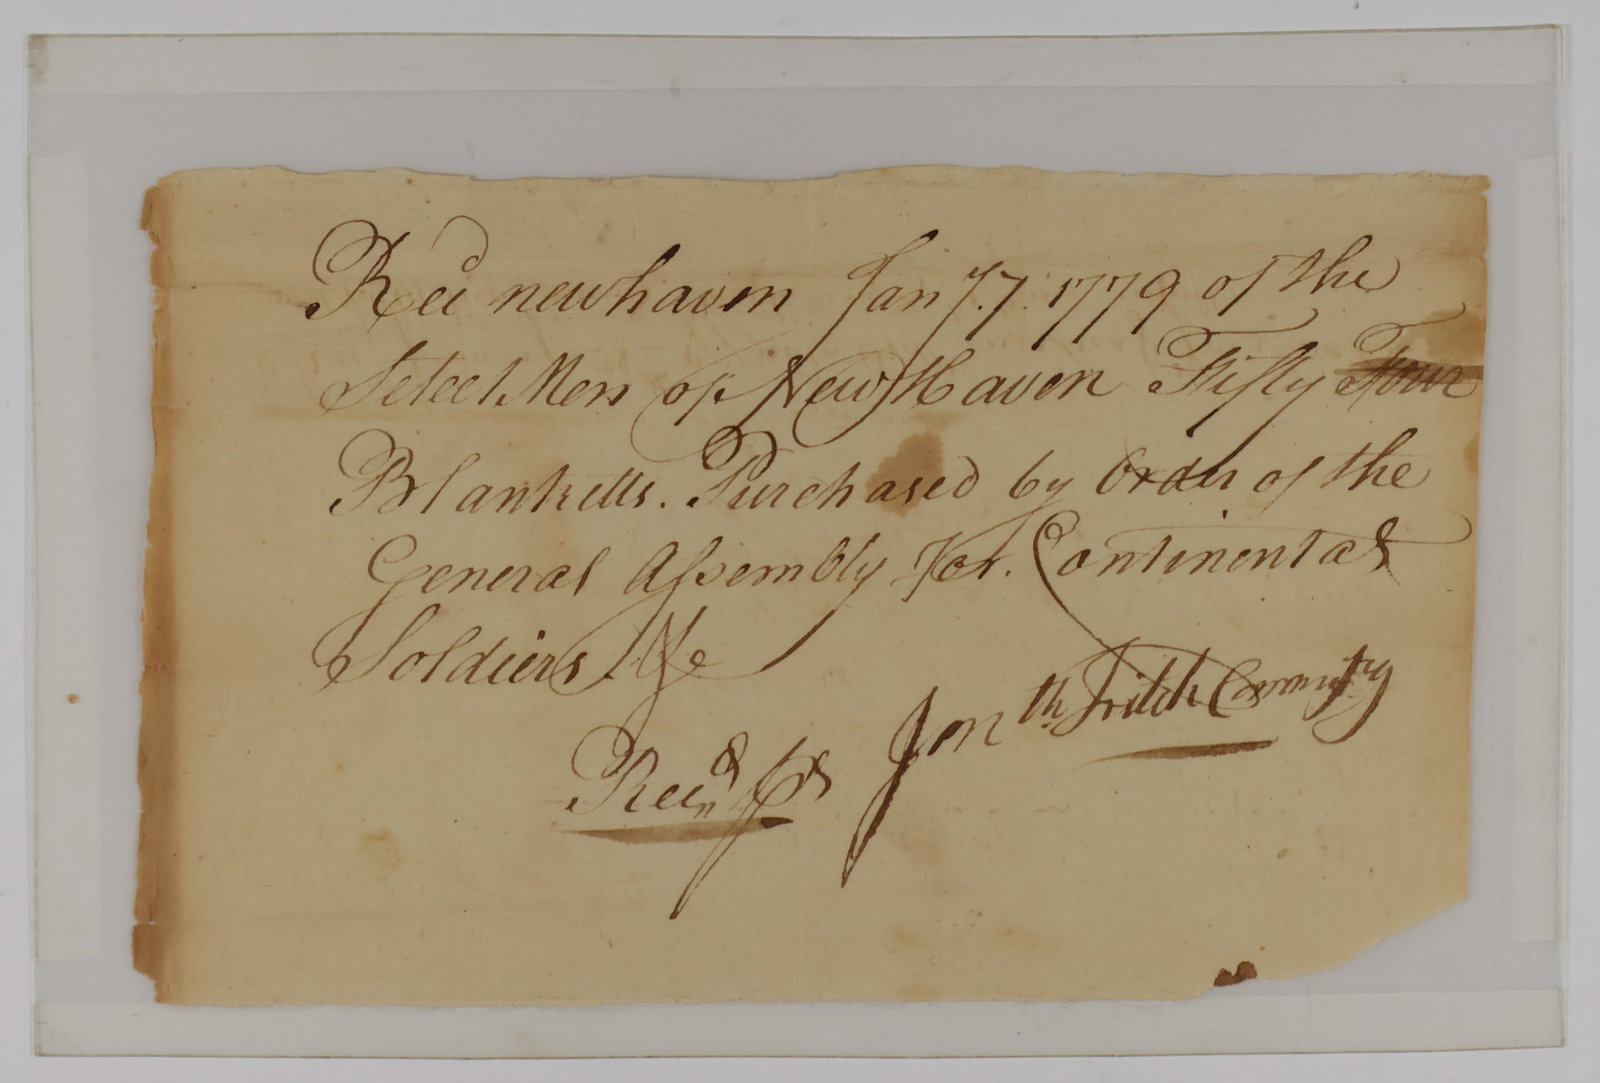 Recd newhaven Jany. 7. 1779 of the
Select Men of New Haven Fifty Four
Blanketts. Purchased by Order of the
General Assembly For. Continental
Soldiers. &c
Jonth Fitch Commissry
Recd